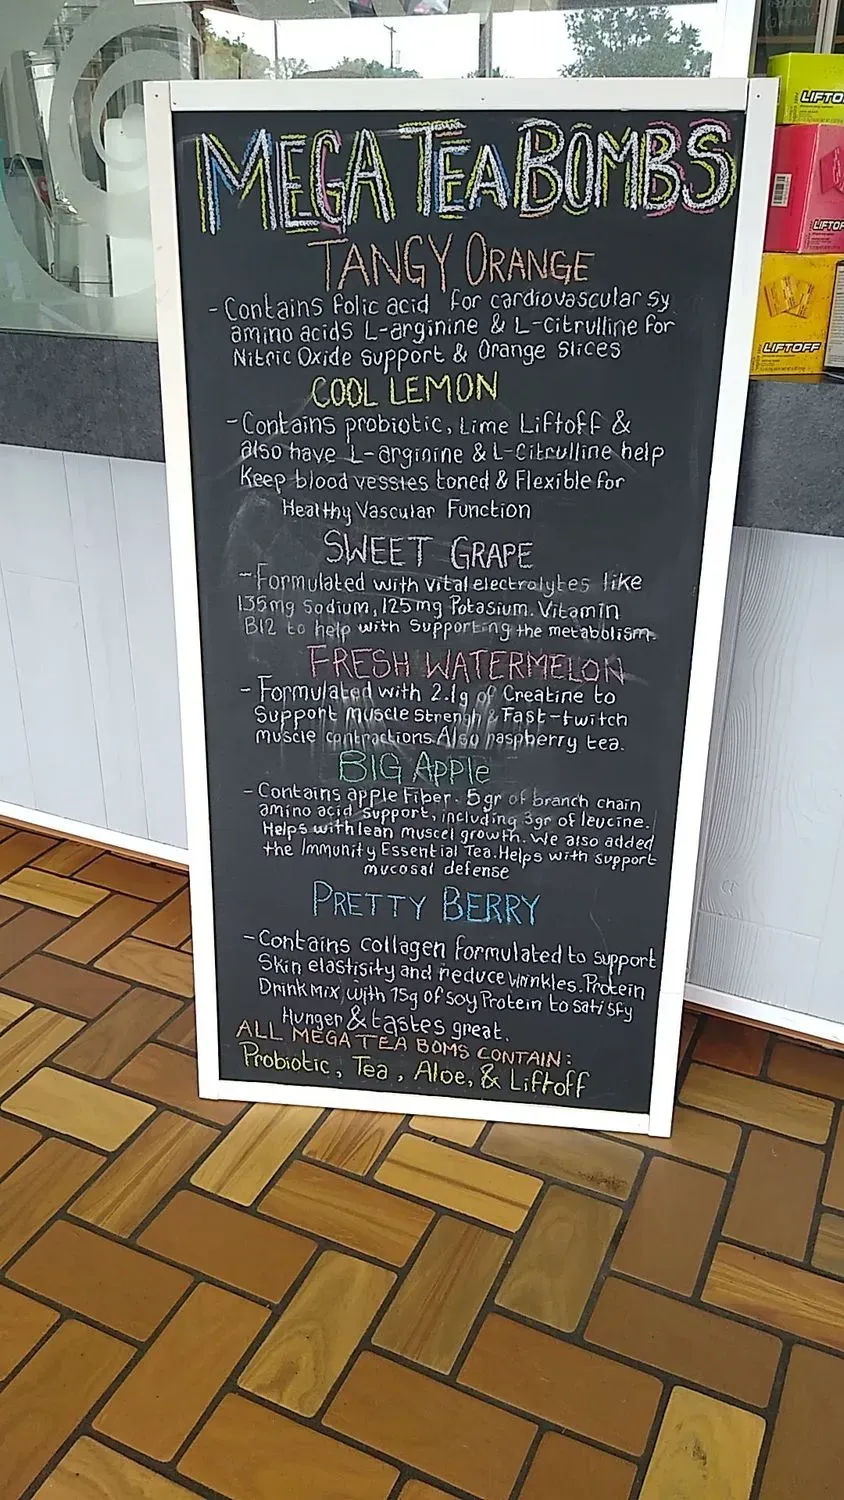 MEGA TEA BOMBS
TANGY ORANGE
- Contains folic acid for cardiovascular sy
amino acids L-arginine & L-citrulline for
Nitric Oxide support & Orange Slices
COOL LEMON
- Contains probiotic, Lime Liftoff &
also have L-arginine & L-Citrulline help
Keep blood vessles toned & Flexible for
Healthy Vascular Function
SWEET GRAPE
- Formulated with vital electrolytes like
135mg Sodium, 125mg Potasium. Vitamin
B12 to help with Supporting the metabolism.
FRESH WATERMELON
- Formulated with 2.1g of Creatine to
Support muscle Strengh & Fast-twitch
muscle contractions. Also raspberry tea.
BIG Apple
- Contains apple Fiber. 5gr of branch chain
amino acid support, including 3gr of leucine.
Helps with lean muscel growth. We also added
the Immunity Essential Tea. Helps with support
mucosal defense
PRETTY BERRY
- Contains collagen formulated to support
Skin elastisity and reduce wrinkles. Protein
Drink Mix, with 15g of Soy Protein to Satisfy
Hunger & tastes great.
ALL MEGA TEA BOMS CONTAIN:
Probiotic, Tea, Aloe, & Liftoff
LIFTO
LIFTOF
LIFTOFF